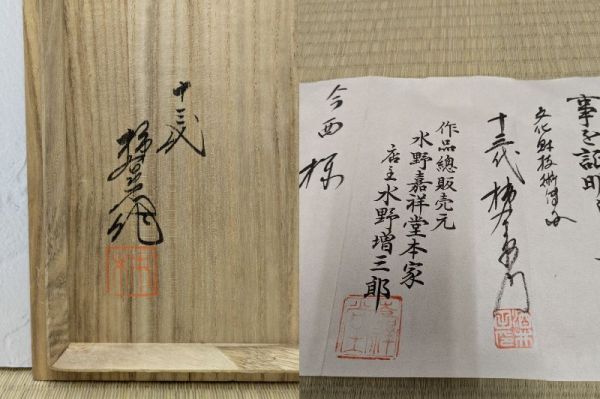 十三代
柿右衛門
事を証明
文化財技術保存
十三代 柿右衛門
作品總販売元
水野嘉祥堂本家
店主 水野増三郎
今西様